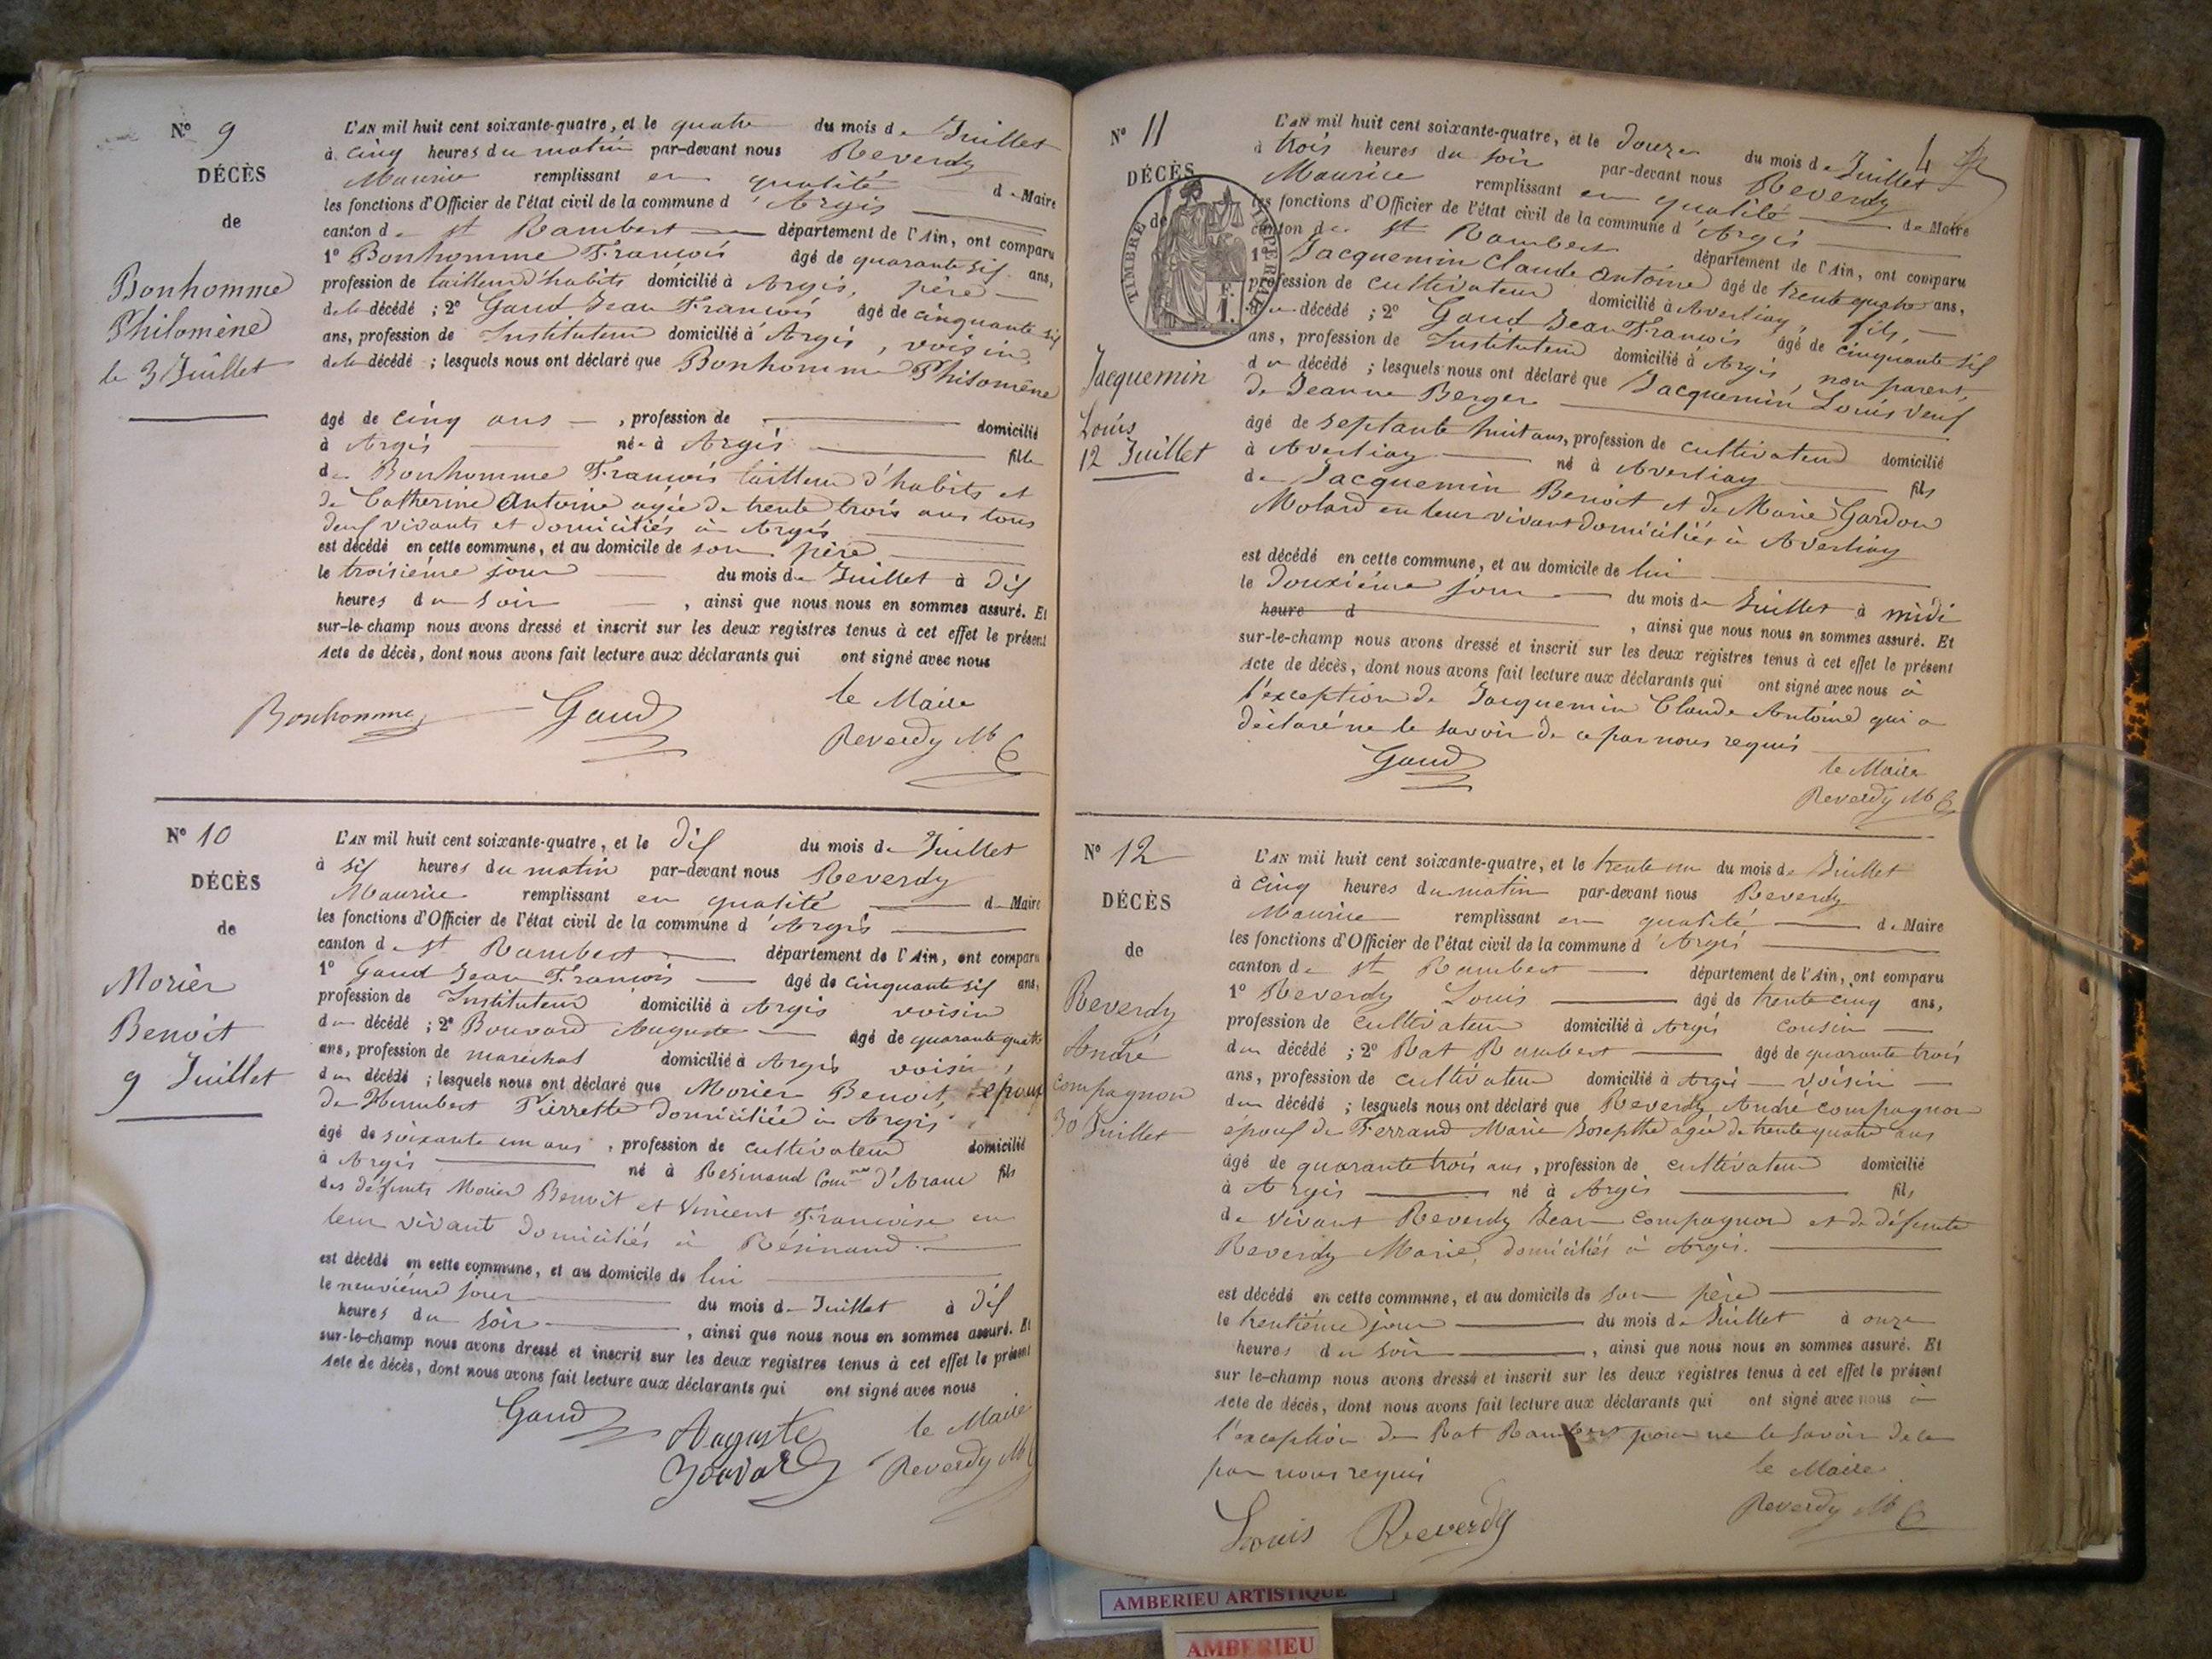 N° 9
DÉCÈS
de
Bonhomme
Philomène
le 3 Juillet
L'AN mil huit cent soixante-quatre, et le quatre du mois de Juillet
à cinq heures du matin par-devant nous Reverdy
Maurice remplissant en qualité de Maire
les fonctions d'Officier de l'état civil de la commune d'Argis
canton de St Rambert département de l'Ain, ont comparu
1° Bonhomme François âgé de quarante six ans,
profession de tailleur d'habits domicilié à Argis, père
de la décédé ; 2° Gaud Jean François âgé de cinquante six
ans, profession de Instituteur domicilié à Argis, voisin,
de la décédé ; lesquels nous ont déclaré que Bonhomme Philomène
âgé de cinq ans, profession de domicilié
à Argis née à Argis fille
de Bonhomme François tailleur d'habits et
de Catherine Antoine agée de trente trois ans tous
deux vivants et domiciliés à Argis
est décédé en cette commune, et au domicile de son père
le troisième jour du mois de Juillet à dix
heures du soir, ainsi que nous nous en sommes assuré. Et
sur-le-champ nous avons dressé et inscrit sur les deux registres tenus à cet effet le présent
Acte de décès, dont nous avons fait lecture aux déclarants qui ont signé avec nous
le Maire
Bonhomme Gaud Reverdy M
N° 10
DÉCÈS
de
Morier
Benoit
9 Juillet
L'AN mil huit cent soixante-quatre, et le dix du mois de Juillet
à six heures du matin par-devant nous Reverdy
Maurice remplissant en qualité de Maire
les fonctions d'Officier de l'état civil de la commune d'Argis
canton de St Rambert département de l'Ain, ont comparu
1° Gaud Jean François âgé de cinquante six ans,
profession de Instituteur domicilié à Argis voisin
du décédé ; 2° Bouvard Auguste âgé de quarante quatre
ans, profession de maréchal domicilié à Argis voisin,
du décédé ; lesquels nous ont déclaré que Morier Benoit, époux
de Humbert Pierrette domiciliée à Argis
âgé de soixante un ans, profession de cultivateur domicilié
à Argis né à Résinand Com.ne d'Aranc fils
des défunts Morier Benoit et Vincent Françoise en
leur vivant domiciliés à Résinand.
est décédé en cette commune, et au domicile de lui
le neuvième jour du mois de Juillet à dix
heures du soir, ainsi que nous nous en sommes assuré. Et
sur-le-champ nous avons dressé et inscrit sur les deux registres tenus à cet effet le présent
Acte de décès, dont nous avons fait lecture aux déclarants qui ont signé avec nous
Gaud Auguste le Maire
Bouvard Reverdy M
4
N° 11
DÉCÈS
de
TIMBRE IMPERIAL
F. 1.
Jacquemin
Louis
12 Juillet
L'AN mil huit cent soixante-quatre, et le douze du mois de Juillet
à trois heures du soir par-devant nous Reverdy
Maurice remplissant en qualité de Maire
les fonctions d'Officier de l'état civil de la commune d'Argis
canton de St Rambert département de l'Ain, ont comparu
1° Jacquemin Claude Antoine âgé de trente quatre ans,
profession de cultivateur domicilié à Averliay, fils,
du décédé ; 2° Gaud Jean François âgé de cinquante six
ans, profession de Instituteur domicilié à Argis, non parent,
du décédé ; lesquels nous ont déclaré que Jacquemin Louis veuf
de Jeanne Berger
âgé de septante huit ans, profession de cultivateur domicilié
à Averliay né à Averliay fils
de Jacquemin Benoit et de Marie Gardon
Molard en leur vivant domiciliés à Averliay
est décédé en cette commune, et au domicile de lui
le douzième jour du mois de Juillet à midi
heure d, ainsi que nous nous en sommes assuré. Et
sur-le-champ nous avons dressé et inscrit sur les deux registres tenus à cet effet le présent
Acte de décès, dont nous avons fait lecture aux déclarants qui ont signé avec nous à
l'exception de Jacquemin Claude Antoine qui a
déclaré ne le savoir de ce par nous requis
Gaud le Maire
Reverdy M
N° 12
DÉCÈS
de
Reverdy
André
compagnon
30 Juillet
L'AN mil huit cent soixante-quatre, et le trente un du mois de Juillet
à cinq heures du matin par-devant nous Reverdy
Maurice remplissant en qualité de Maire
les fonctions d'Officier de l'état civil de la commune d'Argis
canton de St Rambert département de l'Ain, ont comparu
1° Reverdy Louis âgé de trente cinq ans,
profession de cultivateur domicilié à Argis cousin
du décédé ; 2° Rat Rambert âgé de quarante trois
ans, profession de cultivateur domicilié à Argis voisin
du décédé ; lesquels nous ont déclaré que Reverdy André compagnon
époux de Ferrand Marie Josephte agée de trente quatre ans
âgé de quarante trois ans, profession de cultivateur domicilié
à Argis né à Argis fils
de vivant Reverdy Jean compagnon et de défunte
Reverdy Marie, domiciliés à Argis.
est décédé en cette commune, et au domicile de son père
le trentième jour du mois de Juillet à onze
heures du soir, ainsi que nous nous en sommes assuré. Et
sur le-champ nous avons dressé et inscrit sur les deux registres tenus à cet effet le présent
Acte de décès, dont nous avons fait lecture aux déclarants qui ont signé avec nous à
l'exception de Rat Rambert pour ne le savoir de ce
par nous requis le Maire
Louis Reverdy Reverdy M
AMBERIEU ARTISTIQUE
AMBERIEU